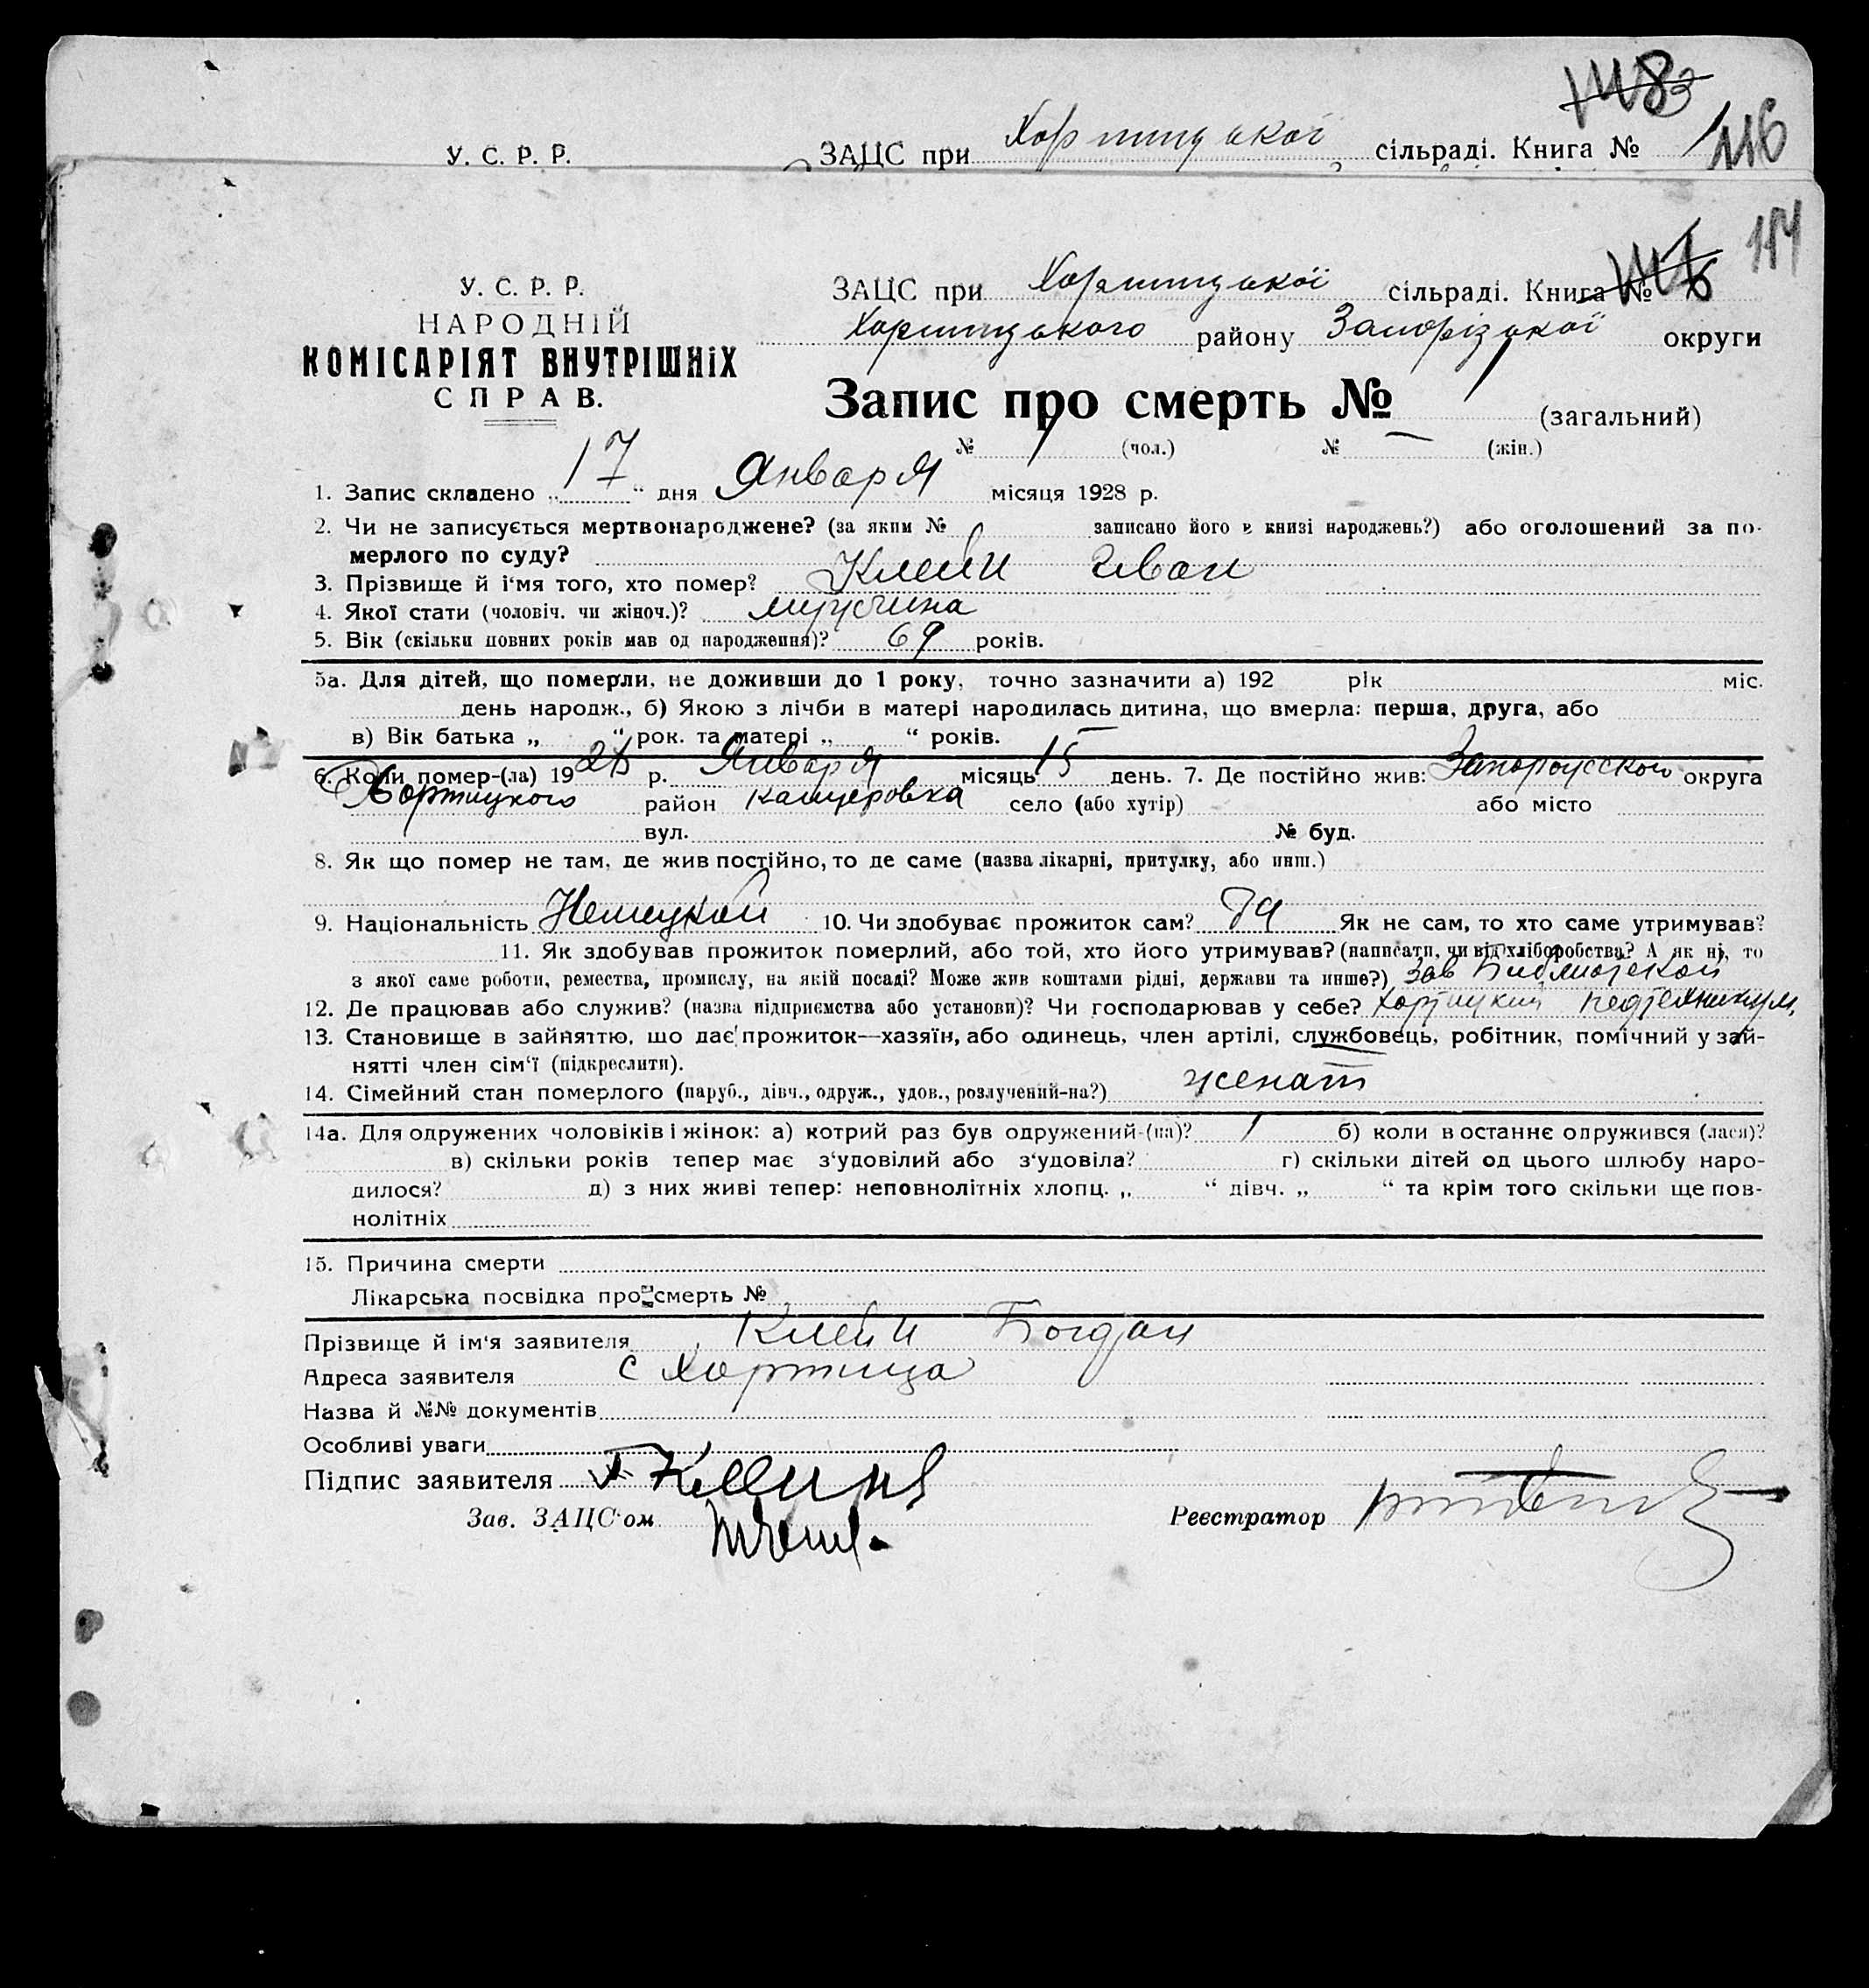 У. С. Р. Р. ЗАЦС при Хортицької сільраді. Книга № 116
117
У. С. Р. Р.
НАРОДНІЙ
КОМІСАРІЯТ ВНУТРІШНІХ
СПРАВ.
ЗАЦС при Хортицької сільраді. Книга №
Хортицького району Запорізької округи
Запис про смерть № 1 (загальний)
№ 1 (чол.) № — (жін.)
1. Запис складено „ 17 “ дня Января місяця 1928 р.
2. Чи не записується мертвонароджене? (за яким № записано його в книзі народжень?) або оголошений за по-
мерлого по суду?
3. Прізвище й і'мя того, хто помер? Клейн Иван
4. Якої стати (чоловіч. чи жіноч.)? мужчина
5. Вік (скільки повних років мав од народження)? 69 років.
5а. Для дітей, що померли, не доживши до 1 року, точно зазначити а) 192 рік міс.
день народж., б) Якою з лічби в матері народилась дитина, що вмерла: перша, друга, або
в) Вік батька „ “ рок. та матері „ “ років.
6. Коли помер-(ла) 1928 р. Января місяць 15 день. 7. Де постійно жив: Запорожской округа
Хортицкого район Канцеровка село (або хутір) або місто
вул. № буд.
8. Як що помер не там, де жив постійно, то де саме (назва лікарні, притулку, або инш.)
9. Національність Немецкой 10. Чи здобуває прожиток сам? Да Як не сам, то хто саме утримував?
11. Як здобував прожиток померлий, або той, хто його утримував? (написати, чи від хліборобства? А як ні, то
з якої саме роботи, ремества, промислу, на якій посаді? Може жив коштами рідні, держави та инше?) Зав Библиотекой
12. Де працював або служив? (назва підприємства або установи)? Чи господарював у себе? Хортицкий педтехникум,
13. Становище в зайняттю, що дає прожиток—хазяїн, або одинець, член артілі, службовець, робітник, помічний у зай-
нятті член сім'ї (підкреслити).
14. Сімейний стан померлого (паруб., дівч., одруж., удов., розлучений-на?) женат
14а. Для одружених чоловіків і жінок: а) котрий раз був одружений-(на)? 1 б) коли в останнє одружився (лася)?
в) скільки років тепер має з'удовілий або з'удовіла? г) скільки дітей од цього шлюбу наро-
дилося? д) з них живі тепер: неповнолітніх хлопц. „ “ дівч. „ “ та крім того скільки ще пов-
нолітніх
15. Причина смерти
Лікарська посвідка про смерть №
Прізвище й ім'я заявителя Клейн Богдан
Адреса заявителя с Хортица
Назва й №№ документів
Особливі уваги
Підпис заявителя
Зав. ЗАЦС'ом
Реєстратор